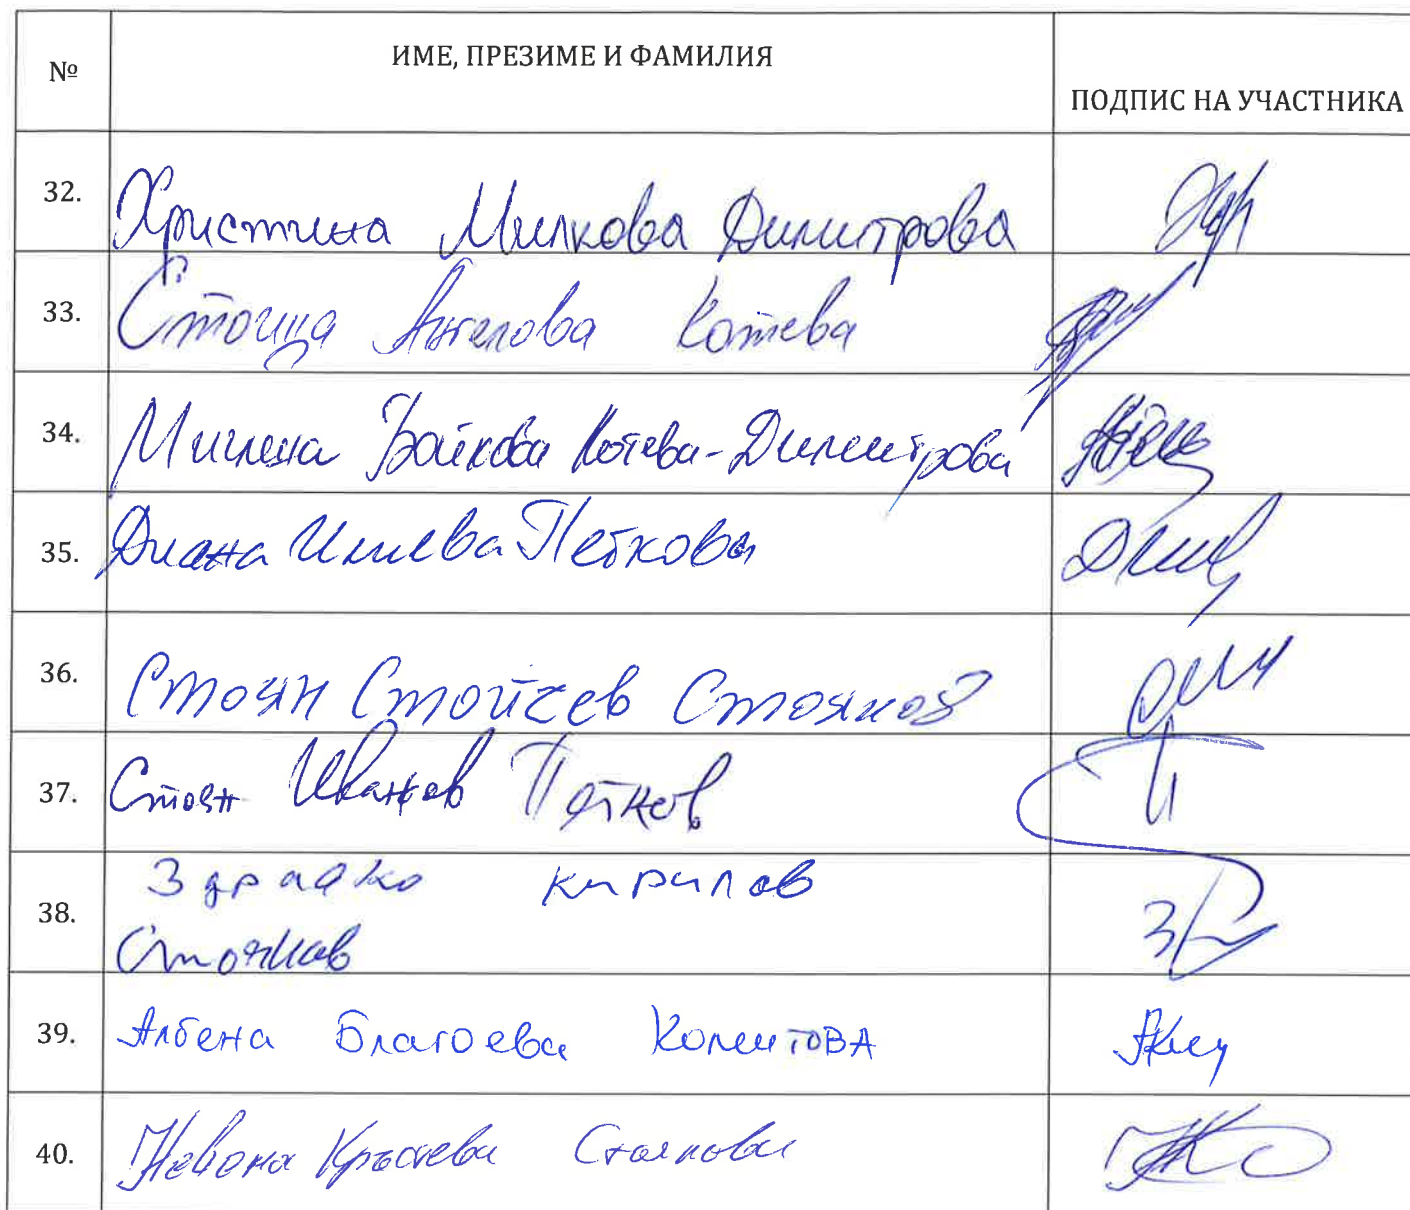 № ИМЕ, ПРЕЗИМЕ И ФАМИЛИЯ ПОДПИС НА УЧАСТНИКА
32. Христина Милкова Димитрова
33. Стоица Ангелова Котева
34. Милена Бойкова Котева-Димитрова
35. Диана Илиева Петкова
36. Стоян Стойчев Стоянов
37. Стоян Иванов Петков
38. Здравко Кирилов
Стоянов
39. Албена Благоева
40. Невена Кръстева Стоянова